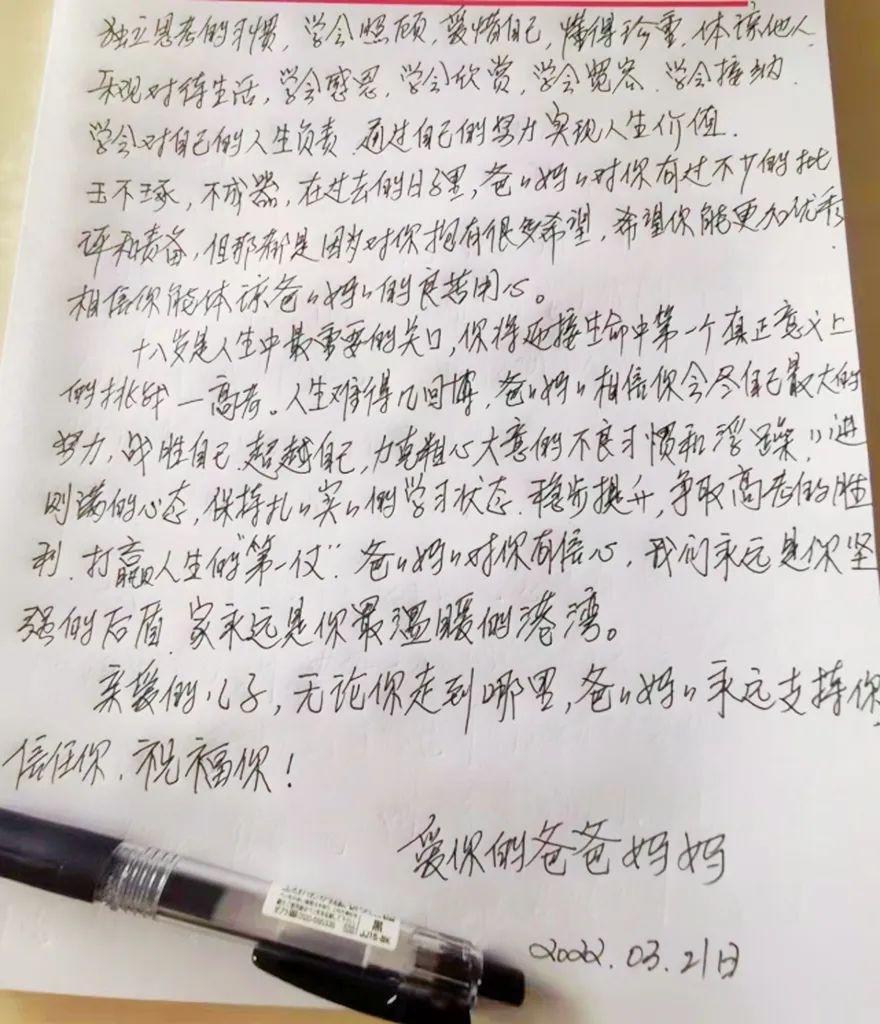 独立思考的习惯，学会照顾，爱惜自己，懂得珍重，体谅他人，
乐观对待生活，学会感恩，学会欣赏，学会宽容，学会接纳，
学会对自己的人生负责，通过自己的努力实现人生价值．
玉不琢，不成器，在过去的日子里，爸〃妈〃对你有过不少的批
评和责备，但那都是因为对你抱有很多希望，希望你能更加优秀，
相信你能体谅爸〃妈〃的良苦用心。
十八岁是人生中最重要的关口，你将迎接生命中第一个真正意义上
的挑战—高考。人生难得几回搏，爸〃妈〃相信你会尽自己最大的
努力，战胜自己，超越自己，力克粗心大意的不良习惯和浮躁，〃进
则满的心态，保持扎〃实〃的学习状态，稳步提升，争取高考的胜
利，打赢人生的“第一仗”．爸〃妈〃对你有信心，我们永远是你坚
强的后盾，家永远是你最温暖的港湾。
亲爱的儿子，无论你走到哪里，爸〃妈〃永远支持你，
信任你，祝福你！
爱你的爸爸妈妈
2022.03.21日
黑
JJ15-BK